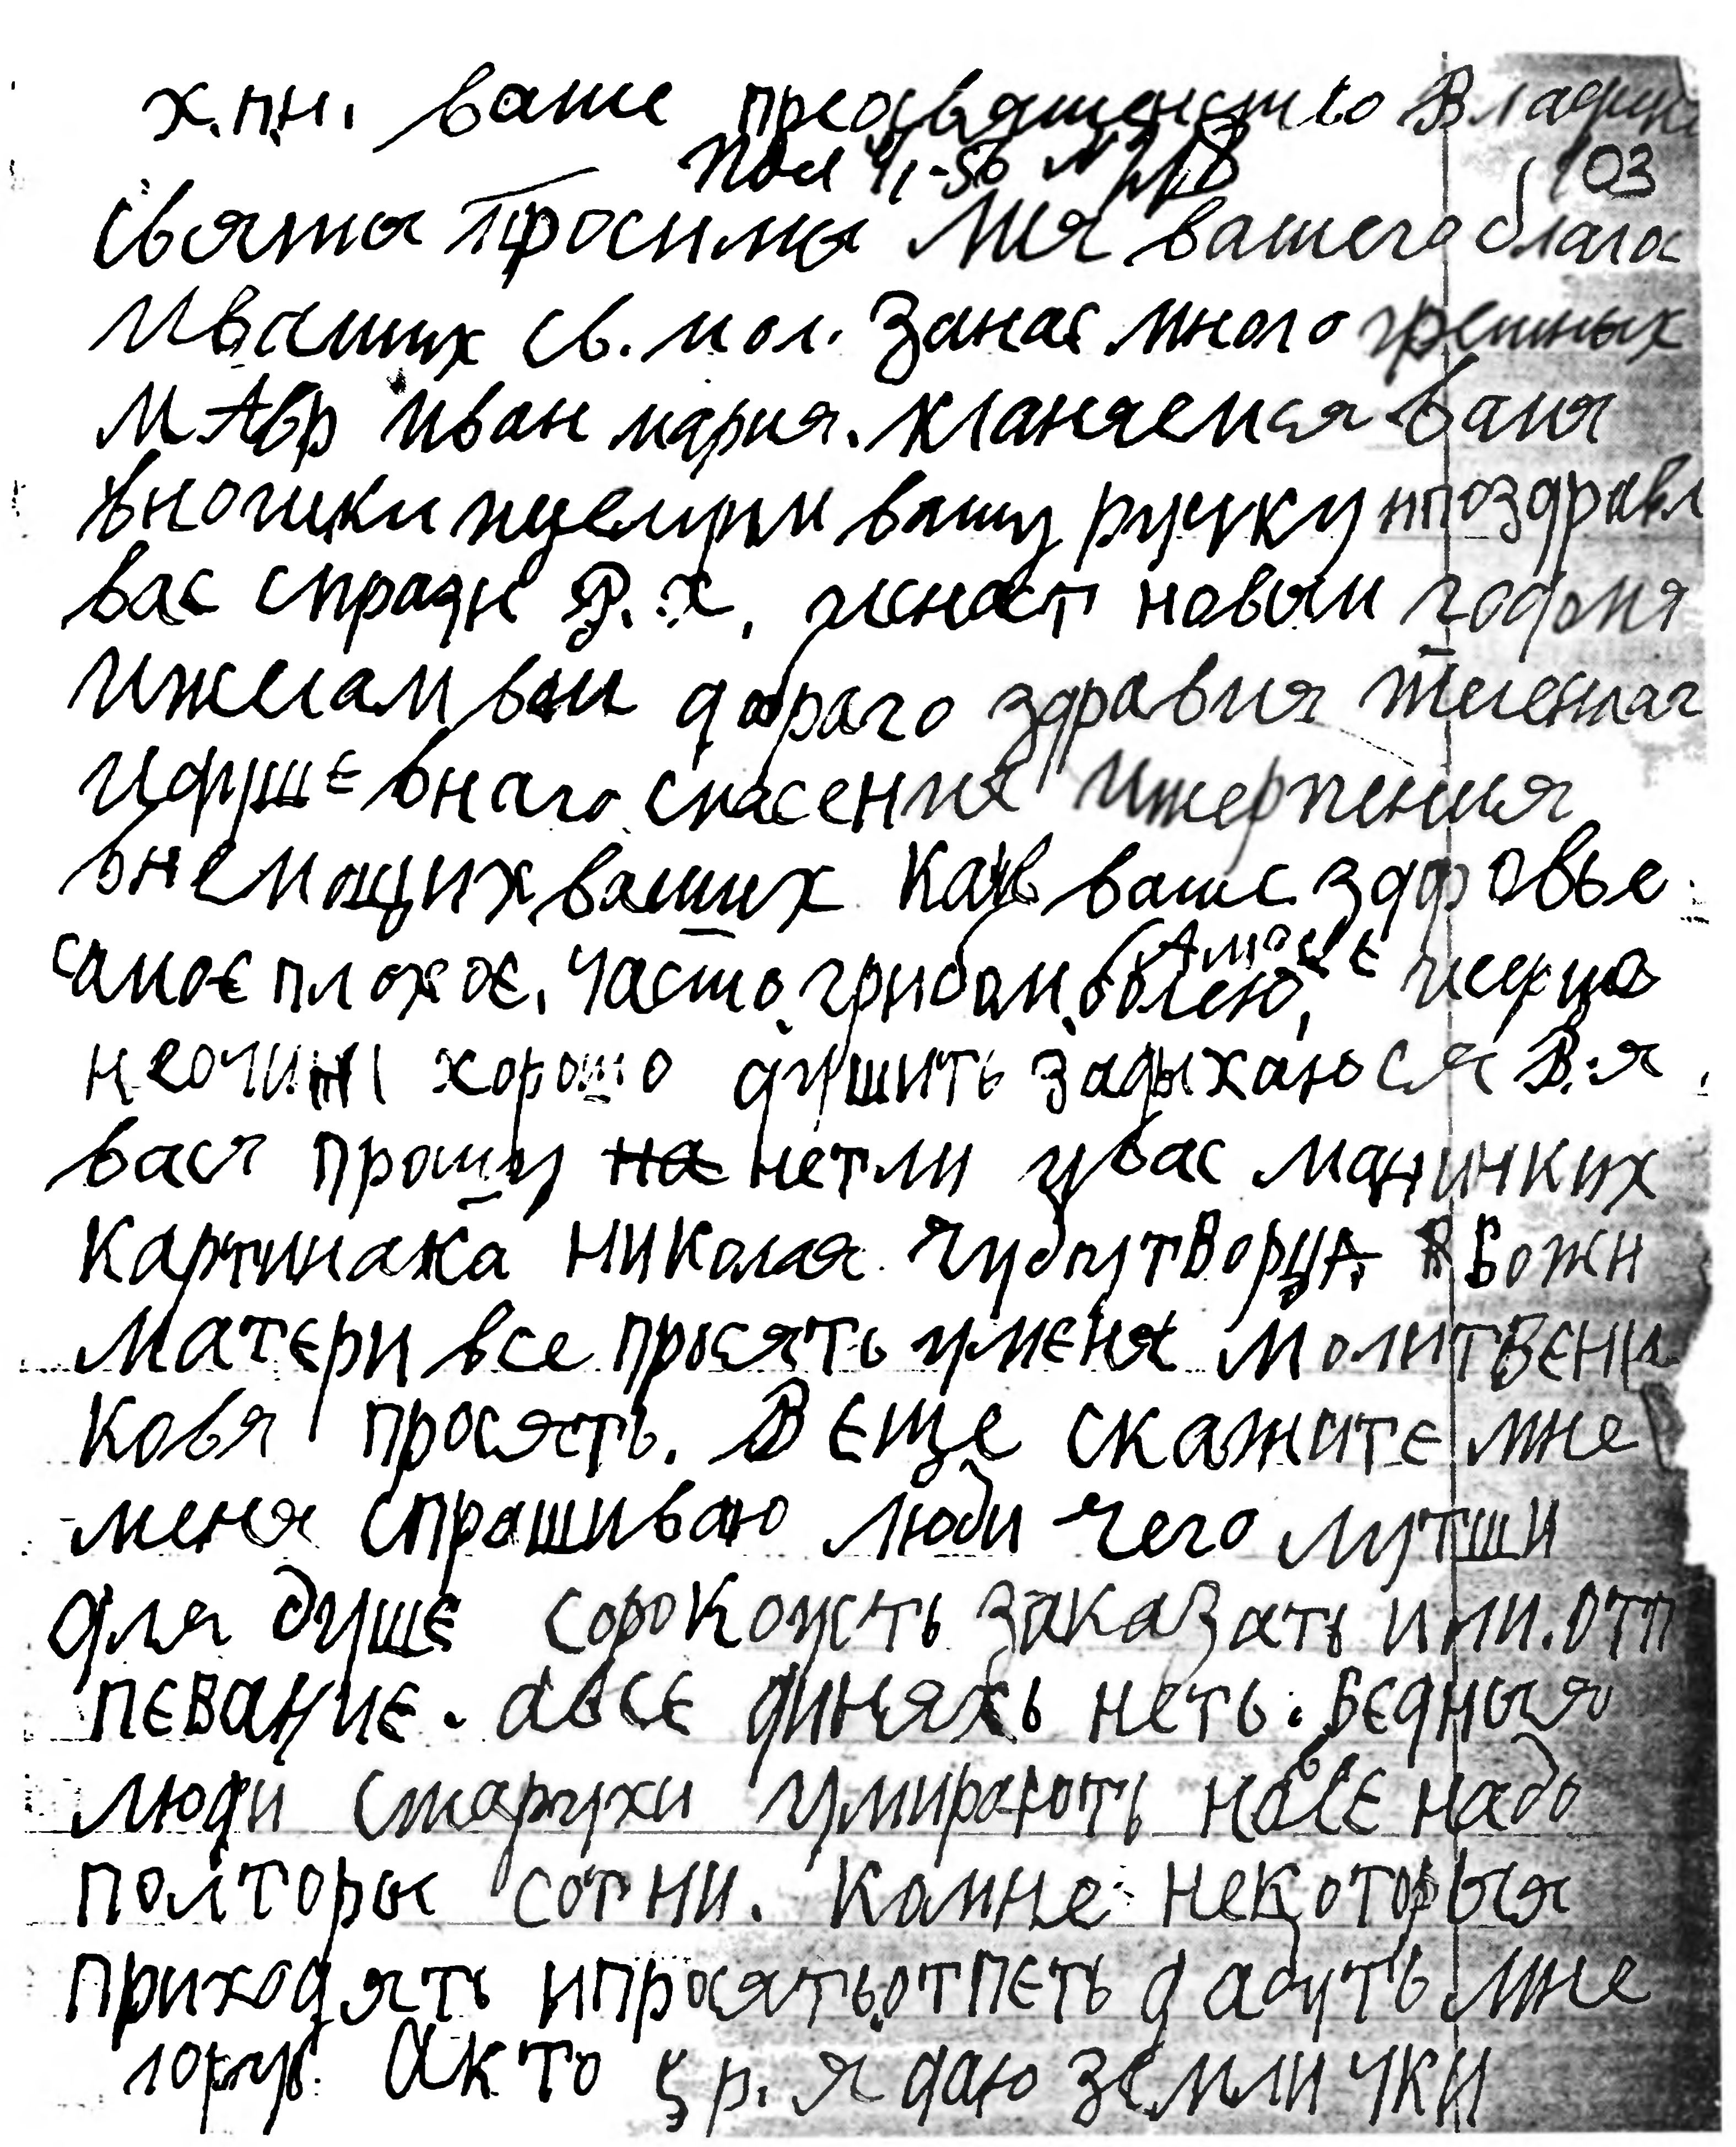 х.пн. ваше преосвященство Влады
103
святы Просимы мы вашего благос
и ваших св. мол. за нас многогрешных
М Авр иван мария. кланяемся вамя
вножки ицелуем вашу ручку ипоздравл
вас спразн Р. Х. новым годомя
ижелам вам добраго здравия телеснаг
идушевнаго спасения итерпения
внемощих ваших какъ ваше здоровье
Амаее
самое плохое. часто грибом болею, сердца
неочинь хорошо душить задыхаюся В.я
вася прошу на нетли увас маничких
картинака николая Чудоутворца В Божи
матери все просять уменя молитвени
ковя просять. В еще скажите мне
меня спрашиваю люди чего лутши
для душе сорокоусть заказать или. отп
певание. авсе диняхъ неть. Бедныя
люди старухи умирають навсе надо
полторы сотни. Комне некоторыя
приходять ипросять отпеть дадуть мне
10 руб. акто 5 р. я даю землички